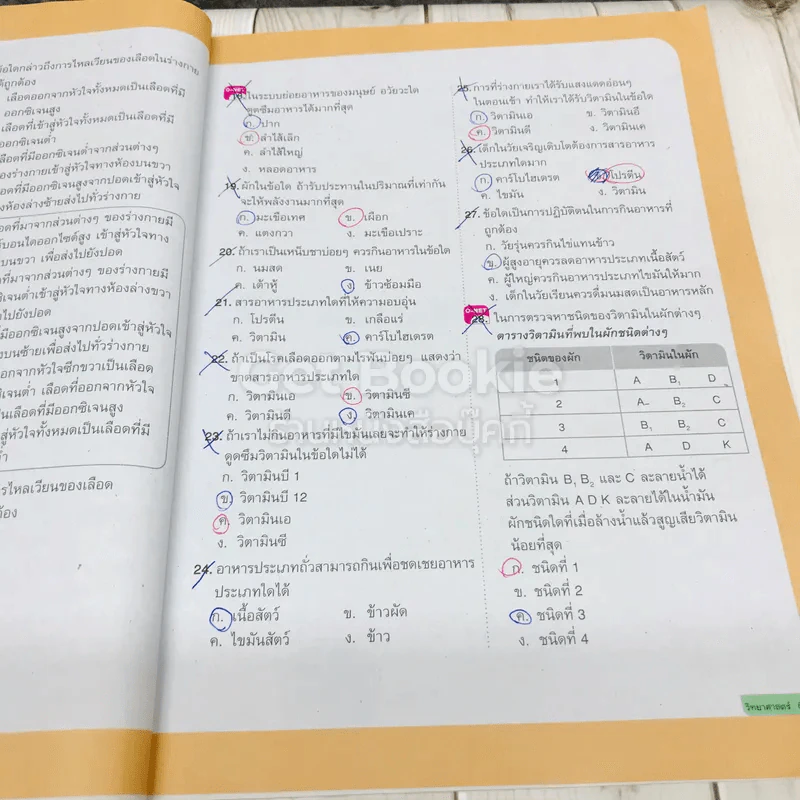 ข้อใดกล่าวถึงการไหลเวียนของเลือดในร่างกาย
ได้ถูกต้อง
เลือดออกจากหัวใจทั้งหมดเป็นเลือดที่มี
ออกซิเจนสูง
เลือดที่เข้าสู่หัวใจทั้งหมดเป็นเลือดที่มี
ออกซิเจนต่ำ
เลือดที่มีออกซิเจนต่ำจากส่วนต่างๆ
ร่างกายเข้าสู่หัวใจทางห้องบนขวา
เลือดที่มีออกซิเจนสูงจากปอดเข้าสู่หัวใจ
ห้องล่างซ้ายส่งไปทั่วร่างกาย
เลือดที่มาจากส่วนต่างๆ ของร่างกายมี
คาร์บอนไดออกไซด์สูง เข้าสู่หัวใจทาง
บนขวา เพื่อส่งไปยังปอด
ที่มาจากส่วนต่างๆ ของร่างกายมี
ซิเจนต่ำเข้าสู่หัวใจทางห้องล่างขวา
ไปยังปอด
มีออกซิเจนสูงจากปอดเข้าสู่หัวใจ
บนซ้ายเพื่อส่งไปทั่วร่างกาย
ออกจากหัวใจซีกขวาเป็นเลือด
เจนต่ำ เลือดที่ออกจากหัวใจ
เป็นเลือดที่มีออกซิเจนสูง
สู่หัวใจทั้งหมดเป็นเลือดที่มี
ารไหลเวียนของเลือด
ต้อง
O-NET
ในระบบย่อยอาหารของมนุษย์ อวัยวะใด
ดูดซึมอาหารได้มากที่สุด
ก. ปาก
ข. ลำไส้เล็ก
ค. ลำไส้ใหญ่
ง. หลอดอาหาร
19. ผักในข้อใด ถ้ารับประทานในปริมาณที่เท่ากัน
จะให้พลังงานมากที่สุด
ก. มะเขือเทศ ข. เผือก
ค. แตงกวา ง. มะเขือเปราะ
20. ถ้าเราเป็นเหน็บชาบ่อยๆ ควรกินอาหารในข้อใด
ก. นมสด ข. เนย
ค. เต้าหู้ ง. ข้าวซ้อมมือ
21. สารอาหารประเภทใดที่ให้ความอบอุ่น
ก. โปรตีน ข. เกลือแร่
ค. วิตามิน ค. คาร์โบไฮเดรต
22. ถ้าเป็นโรคเลือดออกตามไรฟันบ่อยๆ แสดงว่า
ขาดสารอาหารประเภทใด
ก. วิตามินเอ ข. วิตามินซี
ค. วิตามินดี ง. วิตามินเค
23. ถ้าเราไม่กินอาหารที่มีไขมันเลยจะทำให้ร่างกาย
ดูดซึมวิตามินในข้อใดไม่ได้
ก. วิตามินบี 1
ข. วิตามินบี 12
ค. วิตามินเอ
ง. วิตามินซี
24. อาหารประเภทถั่วสามารถกินเพื่อชดเชยอาหาร
ประเภทใดได้
ก. เนื้อสัตว์ ข. ข้าวผัด
ค. ไขมันสัตว์ ง. ข้าว
25. การที่ร่างกายเราได้รับแสงแดดอ่อนๆ
ในตอนเช้า ทำให้เราได้รับวิตามินในข้อใด
ก. วิตามินเอ ข. วิตามินอี
ค. วิตามินดี ง. วิตามินเค
26. เด็กในวัยเจริญเติบโตต้องการสารอาหาร
ประเภทใดมาก
ก. คาร์โบไฮเดรต โปรตีน
ค. ไขมัน ง. วิตามิน
27. ข้อใดเป็นการปฏิบัติตนในการกินอาหารที่
ถูกต้อง
ก. วัยรุ่นควรกินไข่แทนข้าว
ข. ผู้สูงอายุควรลดอาหารประเภทเนื้อสัตว์
ค. ผู้ใหญ่ควรกินอาหารประเภทไขมันให้มาก
ง. เด็กในวัยเรียนควรดื่มนมสดเป็นอาหารหลัก
O-NET
28. ในการตรวจหาชนิดของวิตามินในผักต่างๆ
ตารางวิตามินที่พบในผักชนิดต่างๆ
ชนิดของผัก วิตามินในผัก
1 A B₁ D
2 A B₂ C
3 B₁ B₂ C
4 A D K
ถ้าวิตามิน B₁ B₂ และ C ละลายน้ำได้
ส่วนวิตามิน A D K ละลายได้ในน้ำมัน
ผักชนิดใดที่เมื่อล้างน้ำแล้วสูญเสียวิตามิน
น้อยที่สุด
ก. ชนิดที่ 1
ข. ชนิดที่ 2
ค. ชนิดที่ 3
ง. ชนิดที่ 4
วิทยาศาสตร์
Get Bookie
ร้านหนังสือบุ๊คกี้